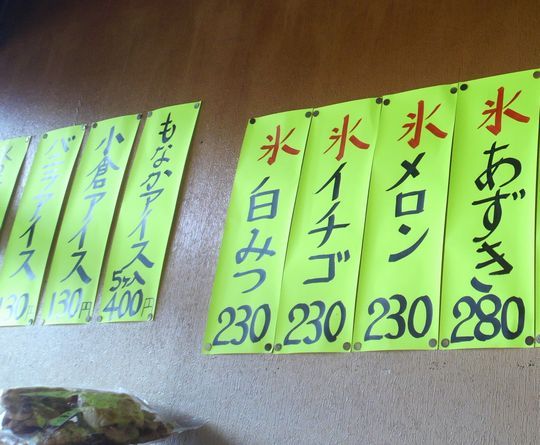 氷あずき
280
氷メロン
230
氷イチゴ
230
氷白みつ
230
もなかアイス
5ヶ入
400円
小倉アイス
130円
バニラアイス
130円
130